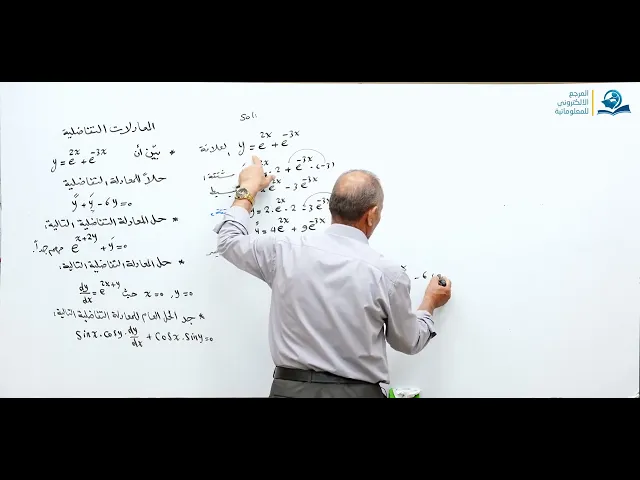 المرجع
الالكتروني
للمعلوماتية
المعادلات التفاضلية
* بيّن أن y = e^2x + e^-3x
حلاً للمعادلة التفاضلية
y̋ + ý - 6y = 0
* حل المعادلة التفاضلية التالية:
e^x+2y + ý = 0 مهم جداً.
* حل المعادلة التفاضلية التالية:
dy/dx = e^2x+y حيث x=0 , y=0
* جد الحل العام للمعادلة التفاضلية التالية:
Sinx . Cosy . dy/dx + Cosx . Siny = 0
Sol:
العلاقة y = e^2x + e^-3x
2x . 2 + e^-3x . (-3)
e^2x - 3e^-3x
y = 2 . e^2x . 2 - 3e^-3x
y = 4e^2x + 9e^-3x
- 6